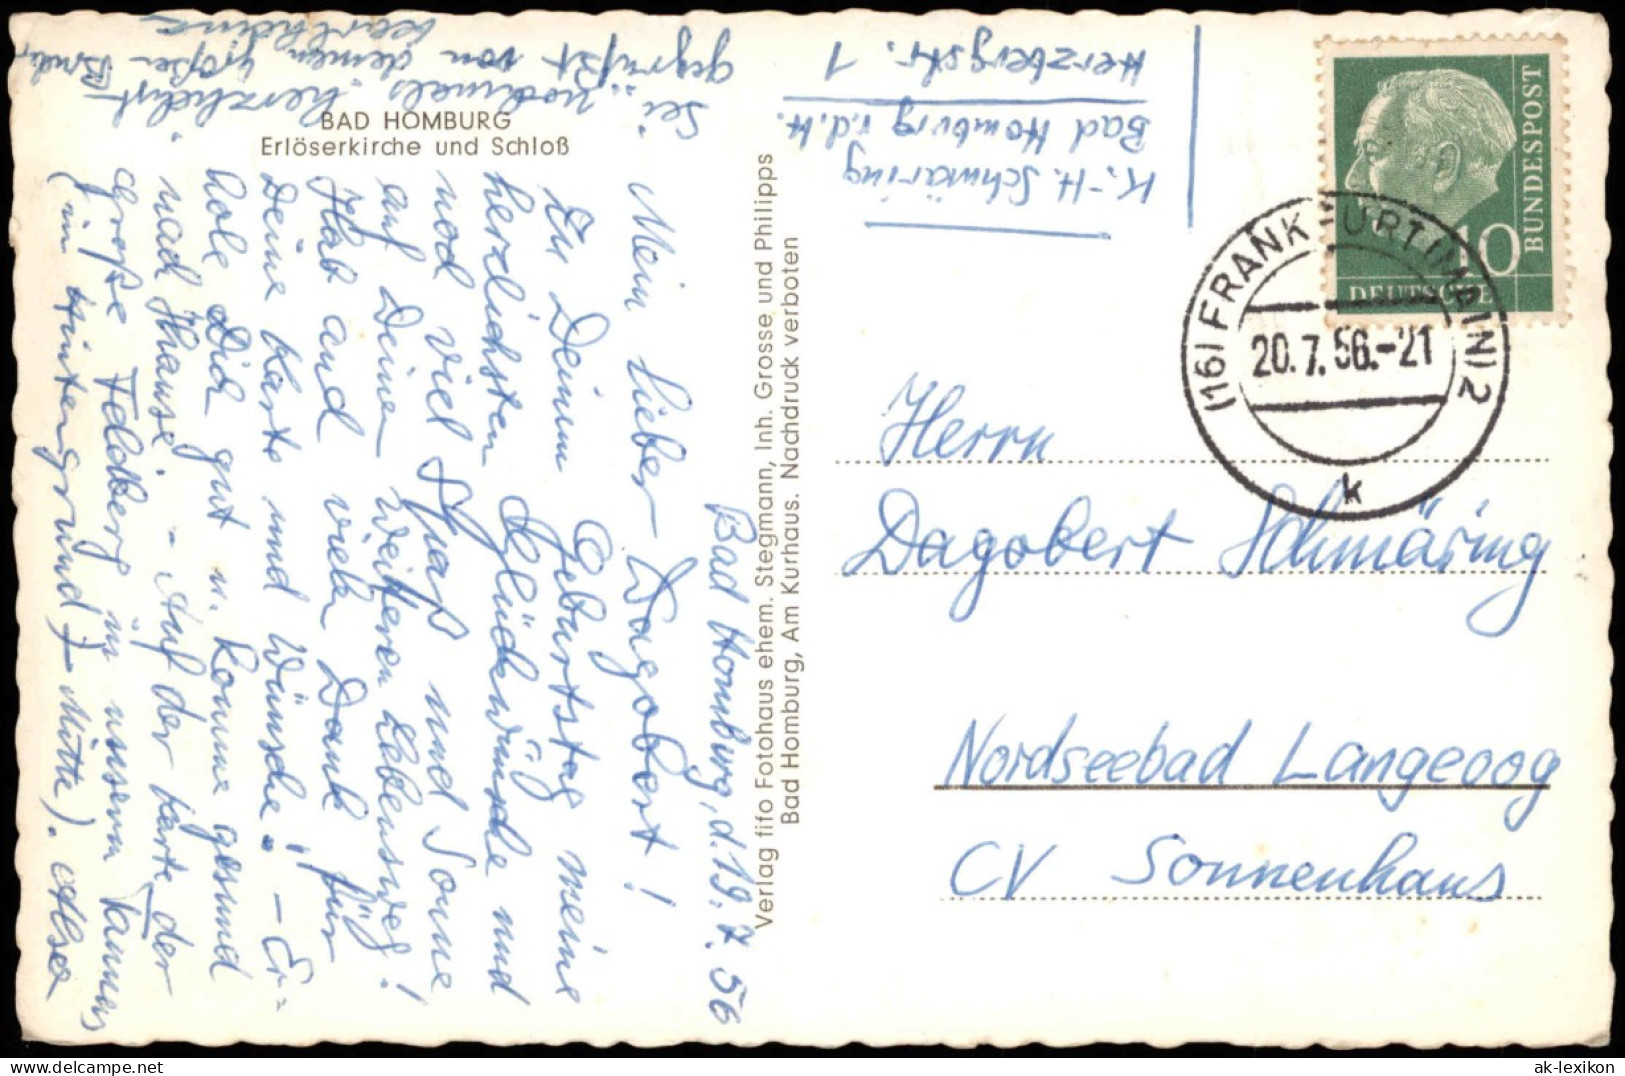 BAD HOMBURG
Erlöserkirche und Schloß
Bad Homburg, d. 19. 7. 56
Mein lieber Dagobert!
Zu Deinem Geburtstag meine
herzlichsten Glückwünsche und
noch viel Spaß und Sonne
auf Deinem weiteren Lebensweg!
Hab auch vielen Dank für
Deine Karte und Wünsche. – Er-
hole Dich gut u. komme gesund
nach Hause! – Auf der Karte der
Große Feldberg in unserm Taunus
(im Hintergrund – Mitte). Also
sei nochmals herzlichst
gegrüßt von deinem großen Bruder
Karlheinz
Verlag fifo Fotohaus ehem. Stegmann, Inh. Grosse und Philipps
Bad Homburg, Am Kurhaus. Nachdruck verboten
K.-H. Schmäring
Bad Homburg v.d.H.
Herzbergstr. 1
DEUTSCHE
BUNDESPOST
10
(16) FRANKFURT (MAIN) 2
20.7.56.-21
k
Herrn
Dagobert Schmäring
Nordseebad Langeoog
CV Sonnenhaus
ak-lexikon